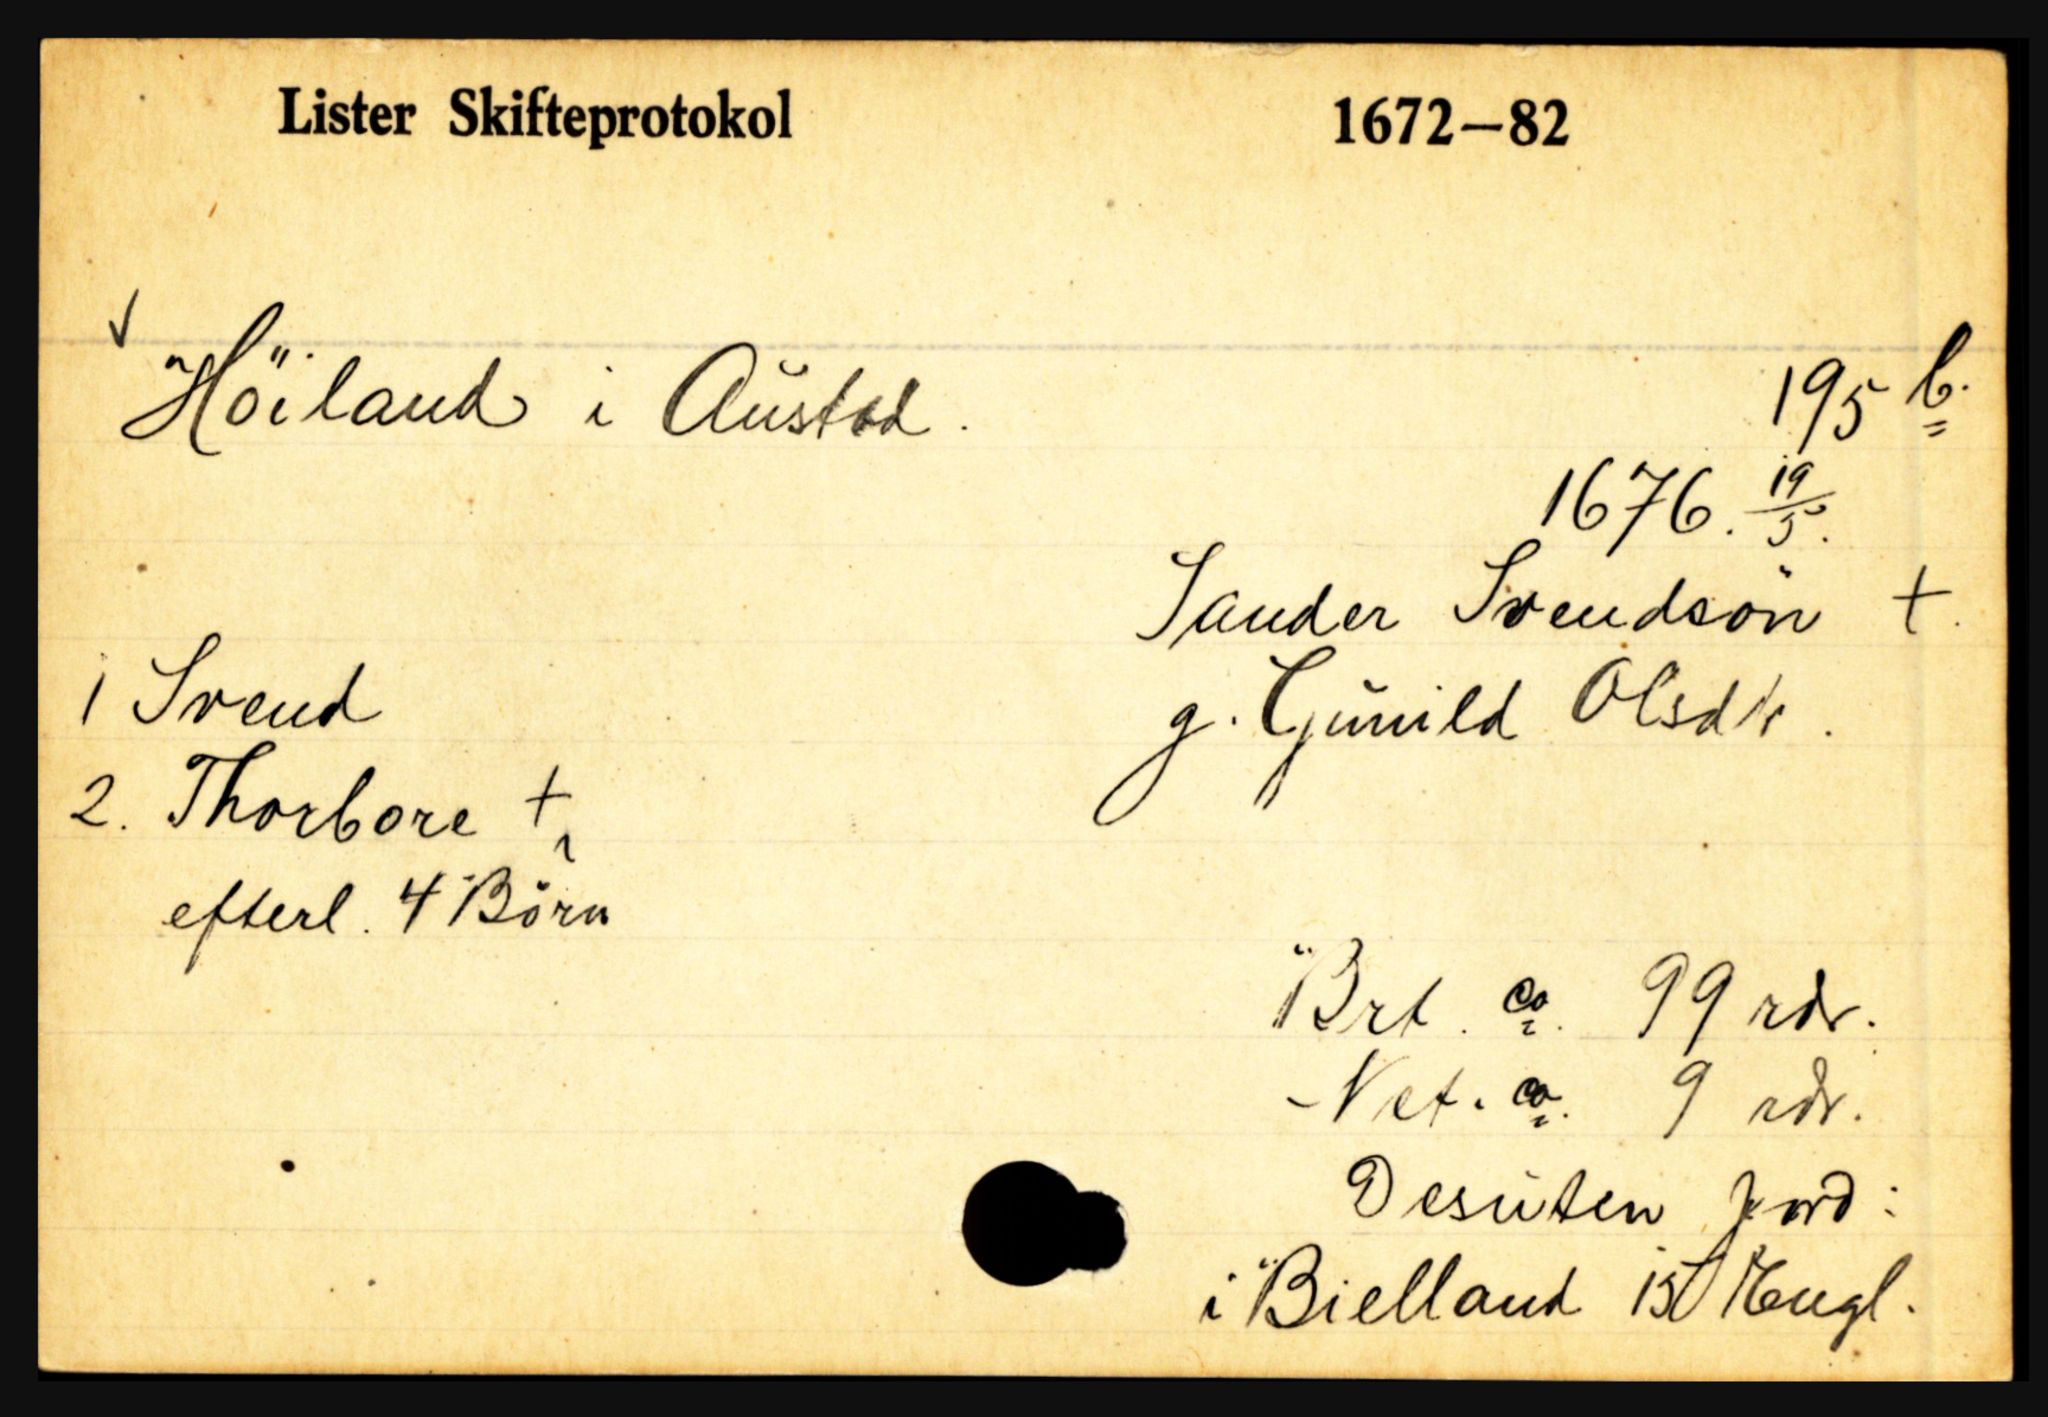 Lister Skifteprotokol 1672—82
Höiland i Austad. 195 b.
1676. 19/5.
Sander Svendsön +.
1 Svend
g. Gunild Olsdtr.
2. Thorbore +,
efterl. 4 Börn
Brt. ca. 99 rdr.
Net. ca. 9 rdr.
Desuten jord:
i Bielland 15 Engl.